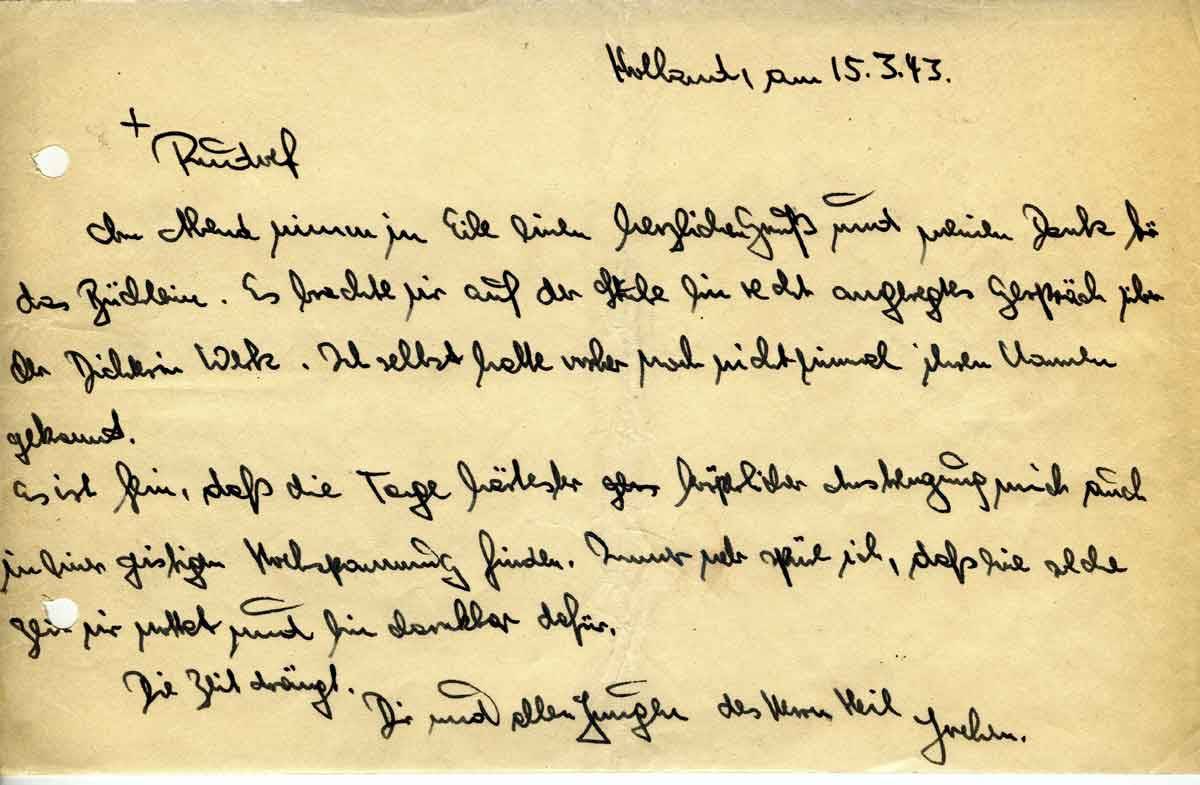 Holland, am 15.3.43.
+
Rudolf
Am Abend nimm in Eile einen herzlichen Gruß und meinen Dank für
das Büchlein. Es brachte mir auf der Stube ein recht angeregtes Gespräch über
der Dichterin Werk. Ich selbst hatte vorher noch nicht einmal ihren Namen
gekannt.
Es ist fein, daß die Tage härtester körperlicher Anstrengung mich auch
in einer geistigen Hochspannung finden. Immer mehr spüre ich, daß eine solche
Zeit mir nottat und bin dankbar dafür.
Die Zeit drängt.
Dir und allen Jungen des Herrn Heil Jochen.